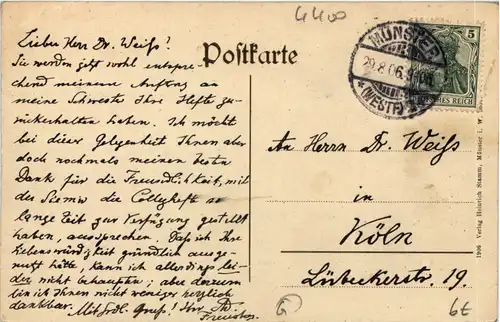 4400
Postkarte
MÜNSTER
29.8.06
*(WESTF.)
5
Lieber Herr Dr. Weiß!
Sie werden jetzt wohl entspre-
chend meinem Auftrag an
meine Schwester Ihre Hefte zu-
rückerhalten haben. Ich möcht
bei dieser Gelegenheit Ihnen aber
doch nochmals meinen besten
Dank für die Freundlichkeit, mit
der Sie mir die Colleghefte so
lange Zeit zur Verfügung gestellt
haben, aussprechen. Daß ich Ihre
Liebenswürdigkeit gründlich ausge-
nutzt hätte, kann ich allerdings lei-
der nicht behaupten; aber darum
bin ich Ihnen nicht weniger herzlich
dankbar. Mit frdl. Gruß! Ihr Th.
An Herrn Dr. Weiß
in
Köln
Lübeckerstr. 19.
1906 Verlag Heinrich Stamm, Münster i. W.